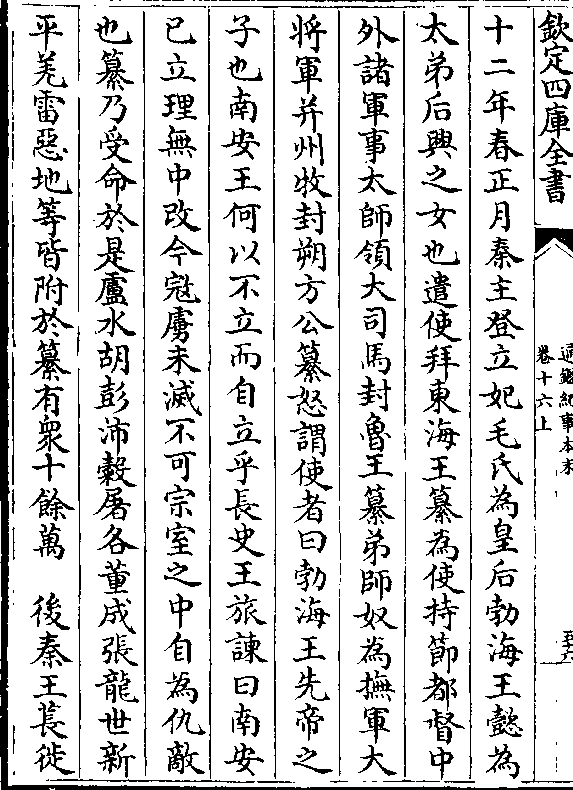 欽定四庫全書
通鑑紀事本末
卷十六上
十二年春正月秦主登立妃毛氏為皇后勃海王懿為
太弟后興之女也遣使拜東海王纂為使持節都督中
外諸軍事太師領大司馬封魯王纂弟師奴為撫軍大
將軍并州牧封朔方公纂怒謂使者曰勃海王先帝之
子也南安王何以不立而自立乎長史王旅諫曰南安
已立理無中改今寇虜未滅不可宗室之中自為仇敵
也纂乃受命於是盧水胡彭沛穀屠各董成張龍世新
平羌雷惡地等皆附於纂有衆十餘萬　後秦王萇徙